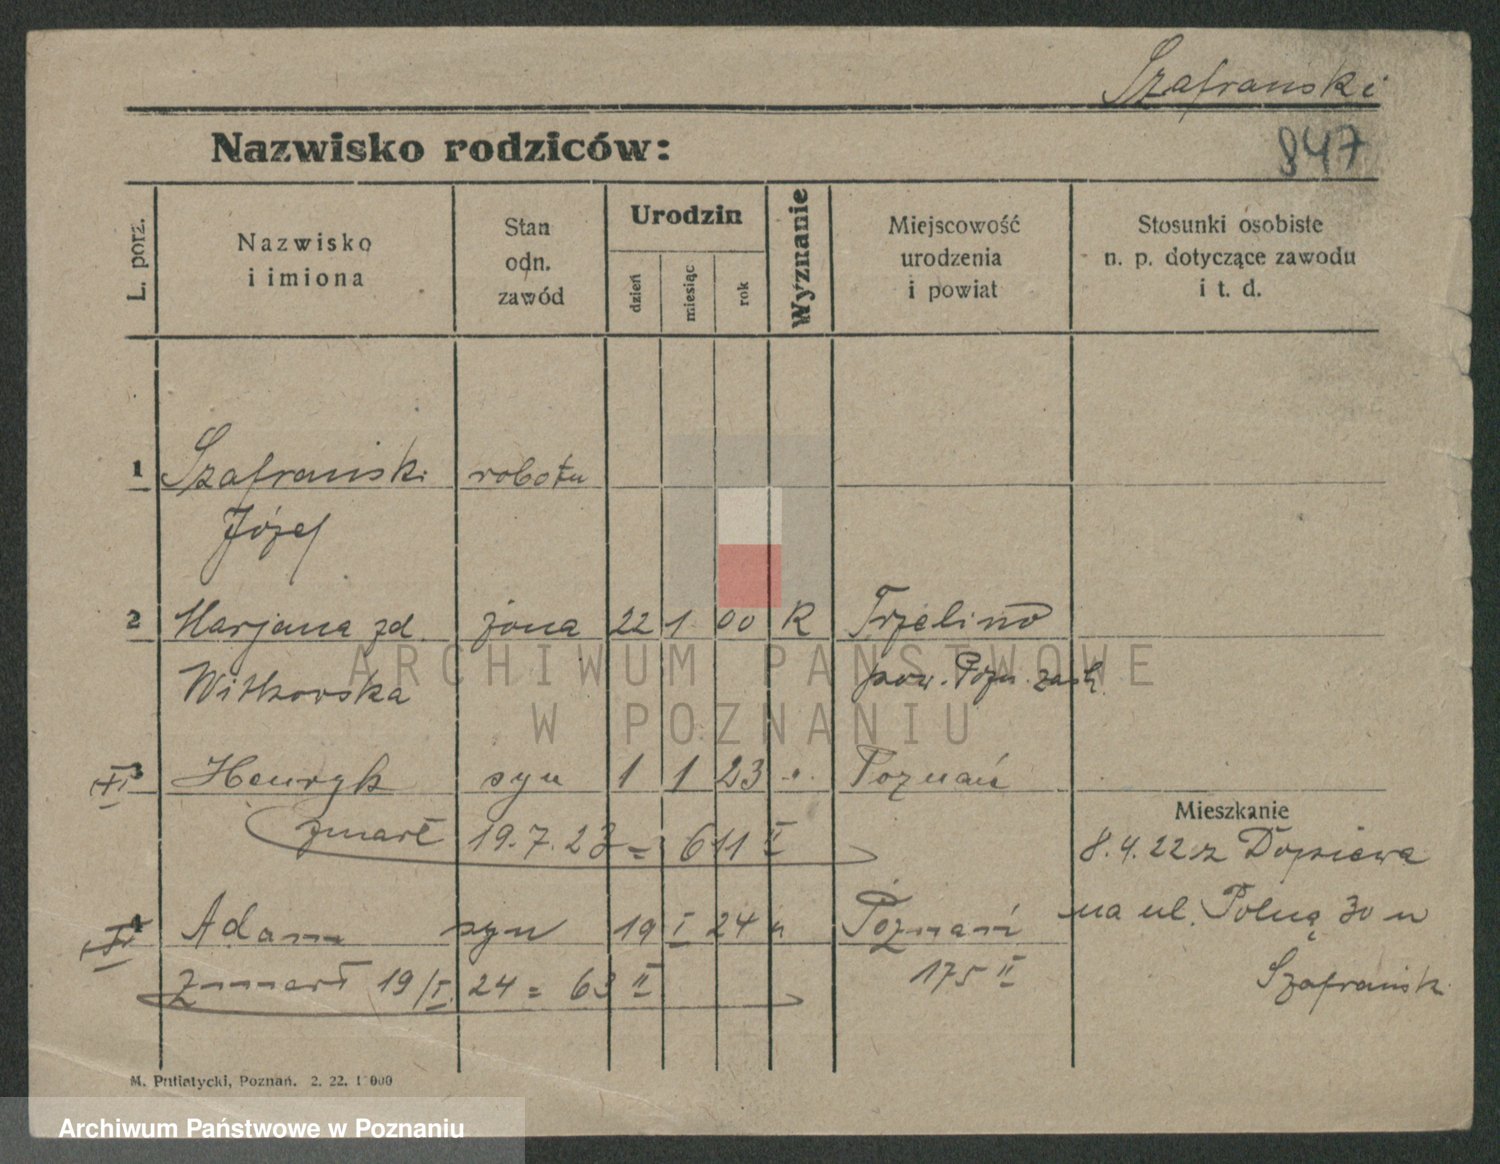 Szafrański
847
Nazwisko rodziców:
L. porz.
Nazwisko
i imiona
Stan
odn.
zawód
Urodzin
dzień
miesiąc
rok
Wyznanie
Miejscowość
urodzenia
i powiat
Stosunki osobiste
n. p. dotyczące zawodu
i t. d.
1 Szafrański robotn
Józef
2 Marjana zd. żona 22 1 00 K Trzelino
Witkowska pow. Pozn. zach.
3 Henryk syn 1 1 23 " Poznań
zmarł 19.7.23 = 611 II
Mieszkanie
8.4.22 z Dopiewa
4 Adam syn 19 I 24 " Poznań
na ul. Polną 30 u
zmarł 19/I 24 = 63 II 175 II
Szafrańsk
M. Putiatycki, Poznań. 2. 22. 1000
ARCHIWUM PAŃSTWOWE
W POZNANIU
Archiwum Państwowe w Poznaniu